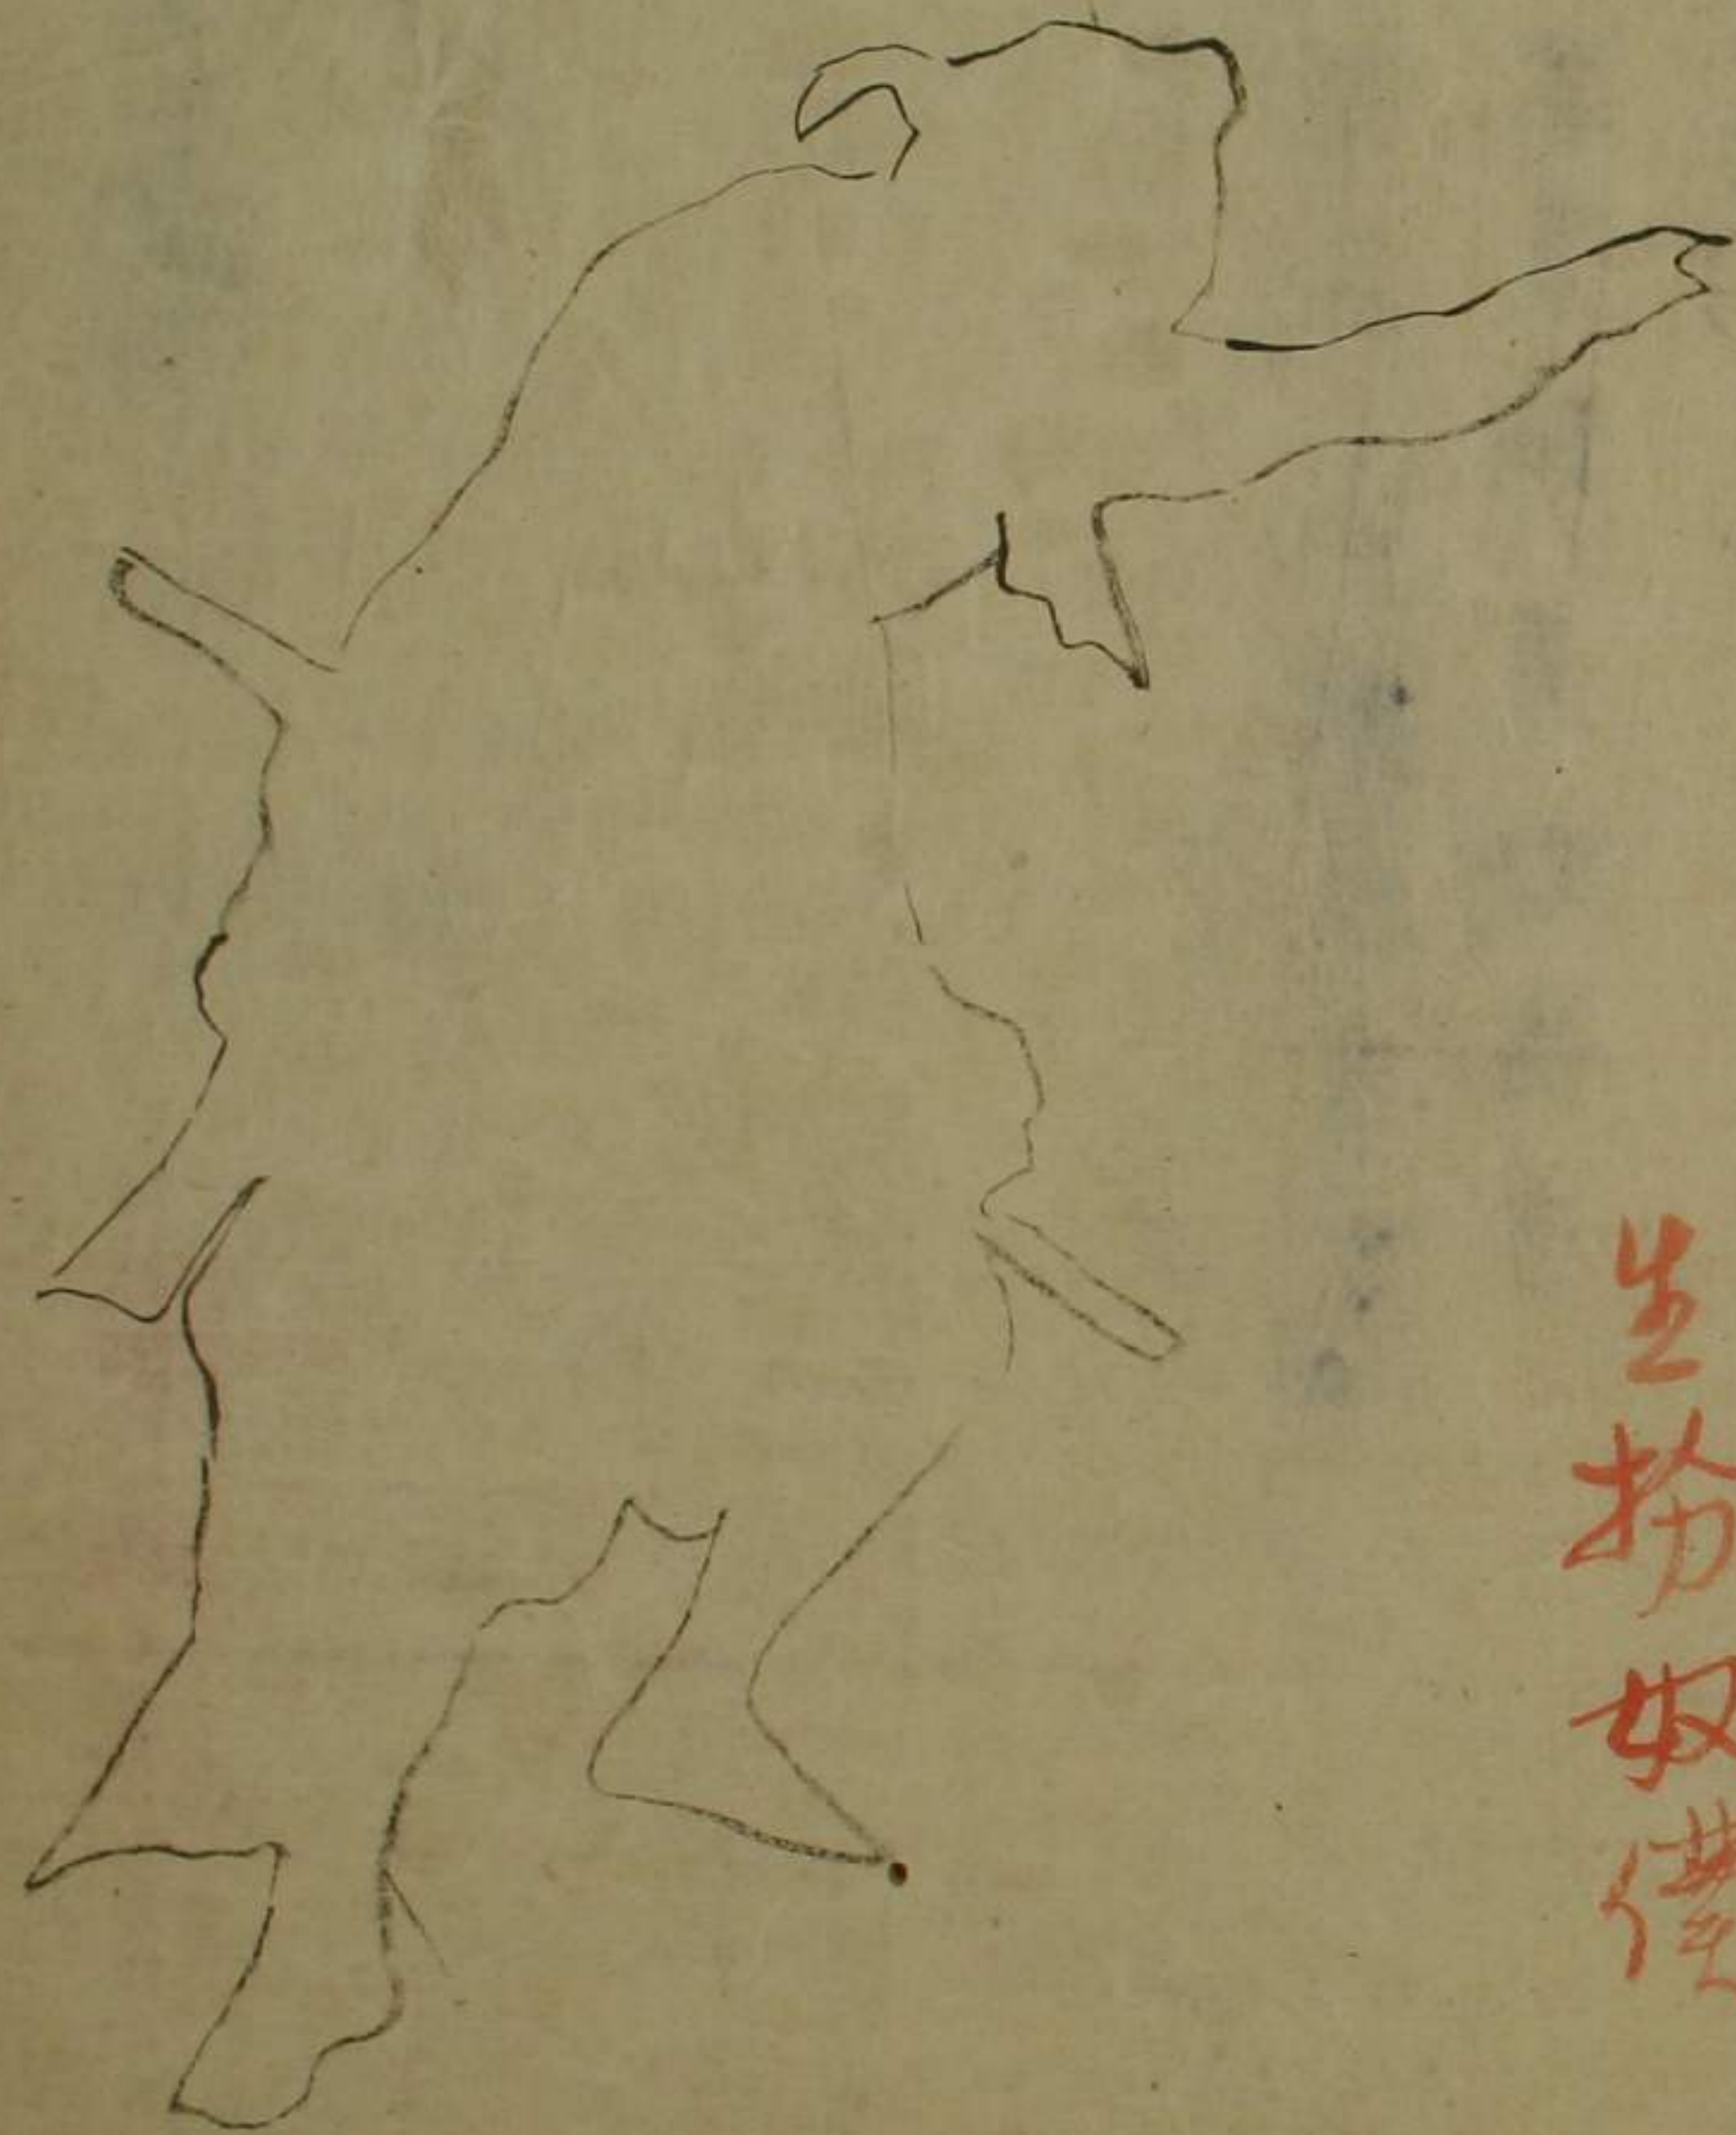 生扮奴僕